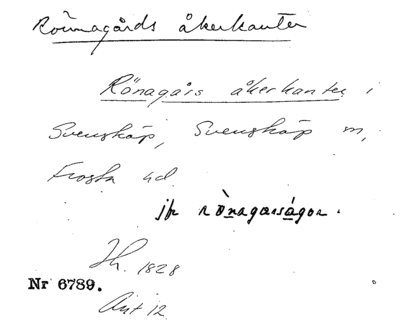 Rönnagårds åkerkanter
Rönagårs åkerkanter i
Svensköp, Svensköp sn,
Frosta hd
jfr rònagarsságor.
Jh. 1828
Nr 6789.
Ant 12